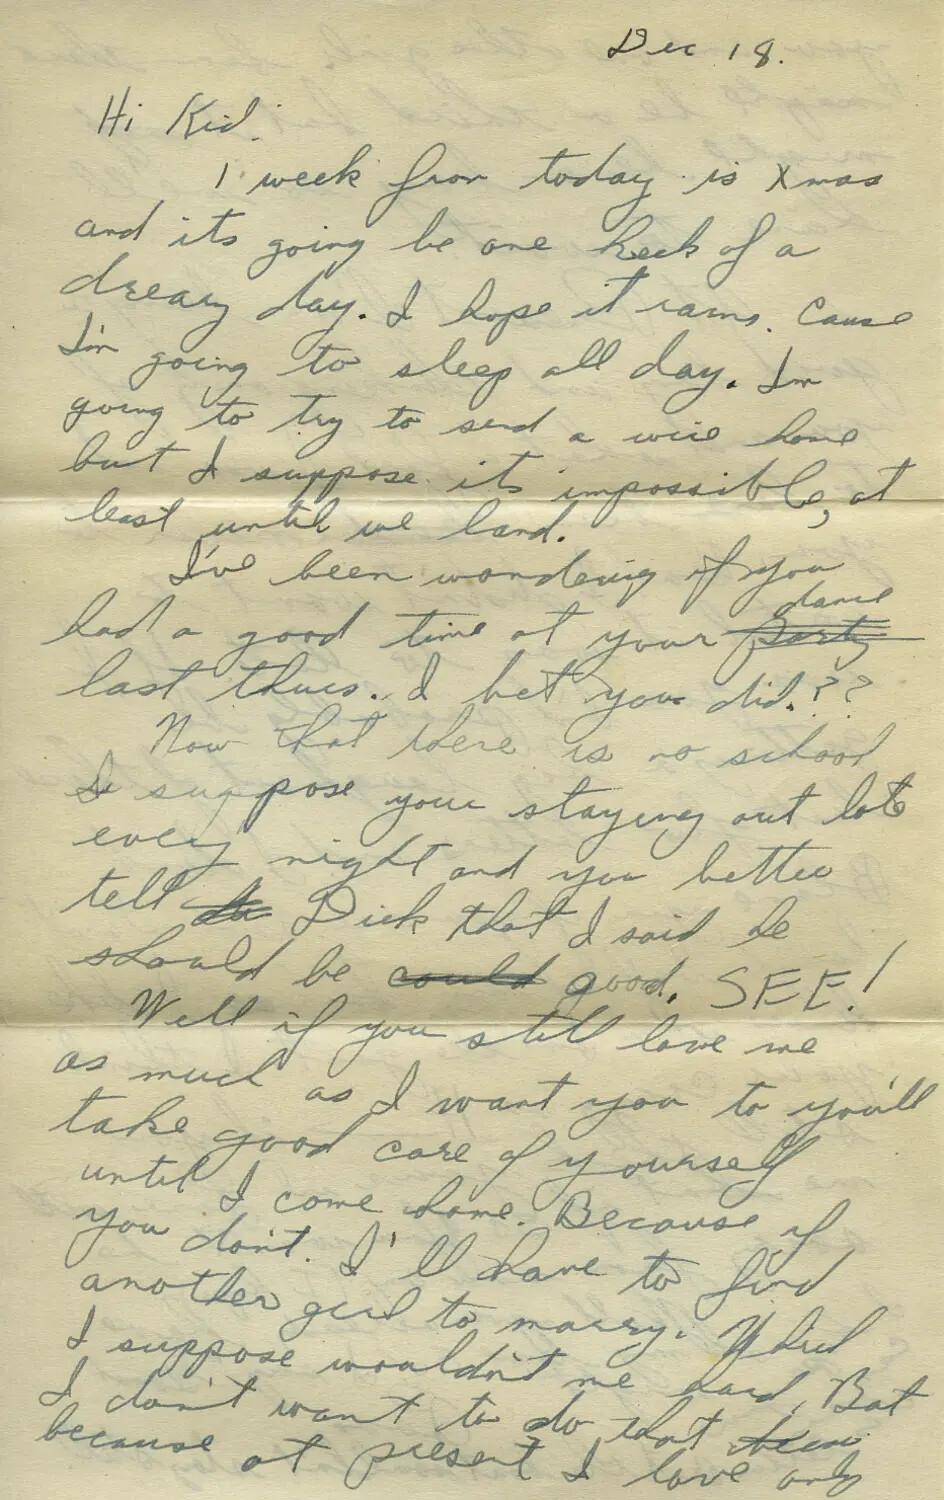 Dec 18.
Hi Kid.
1 week from today is Xmas
and its going be one heck of a
dreary day. I hope it rains. Cause
I'm going to sleep all day. Im
going to try to send a wire home
but I suppose its impossible, at
least until we land.
I've been wondering if you
dance
had a good time at your party
last thurs. I bet you did.??
Now that there is no school
I suppose your staying out late
every night and you better
tell Dick that I said he
should be could good. SEE!
Well if you still love me
as much as I want you to you'll
take good care of yourself
until I come home. Because if
you don't. I'll have to find
another girl to marry. Which
I suppose wouldn't me hard. But
I don't want to do that
because at present I love only